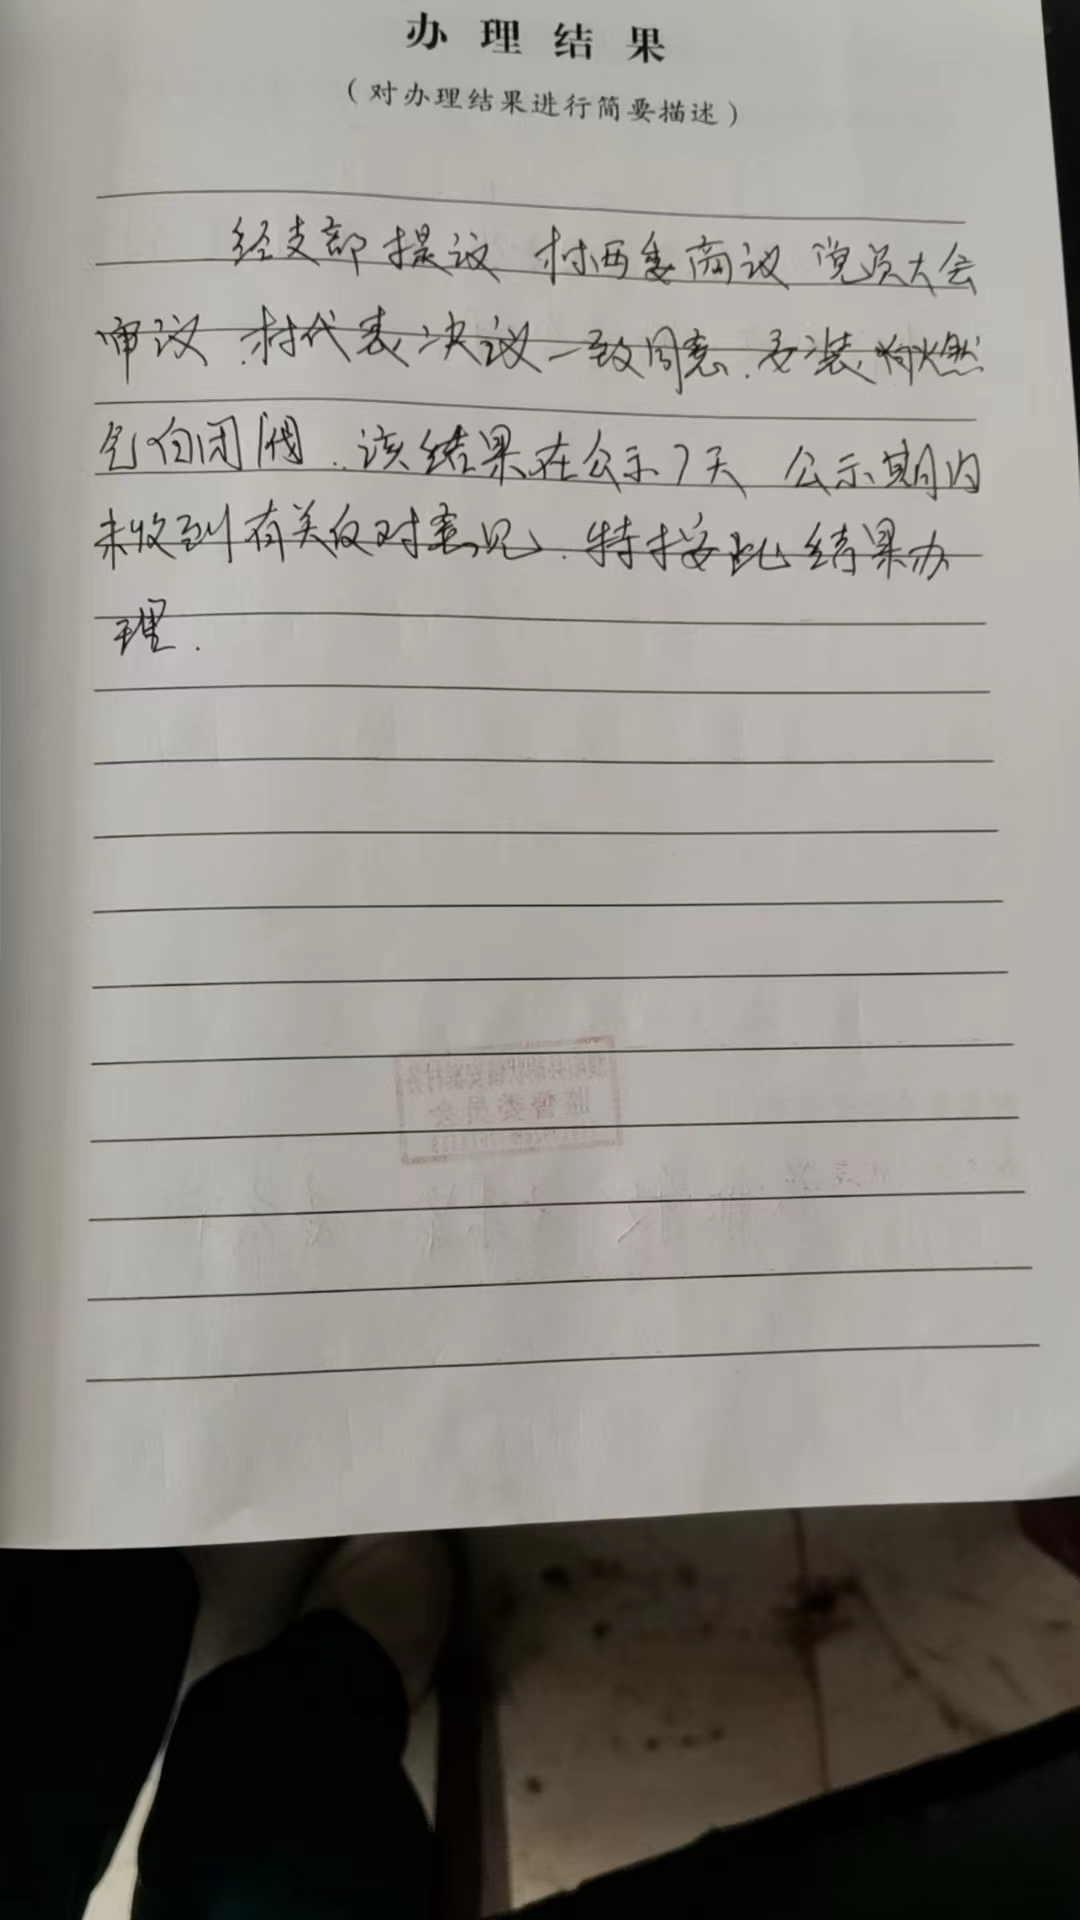 办理结果
（对办理结果进行简要描述）
经支部提议 村两委商议 党员大会
审议.村代表决议一致同意.安装燃
气自闭阀.该结果在公示7天 公示期内
未收到有关反对意见.特按此结果办
理.
监督委员会